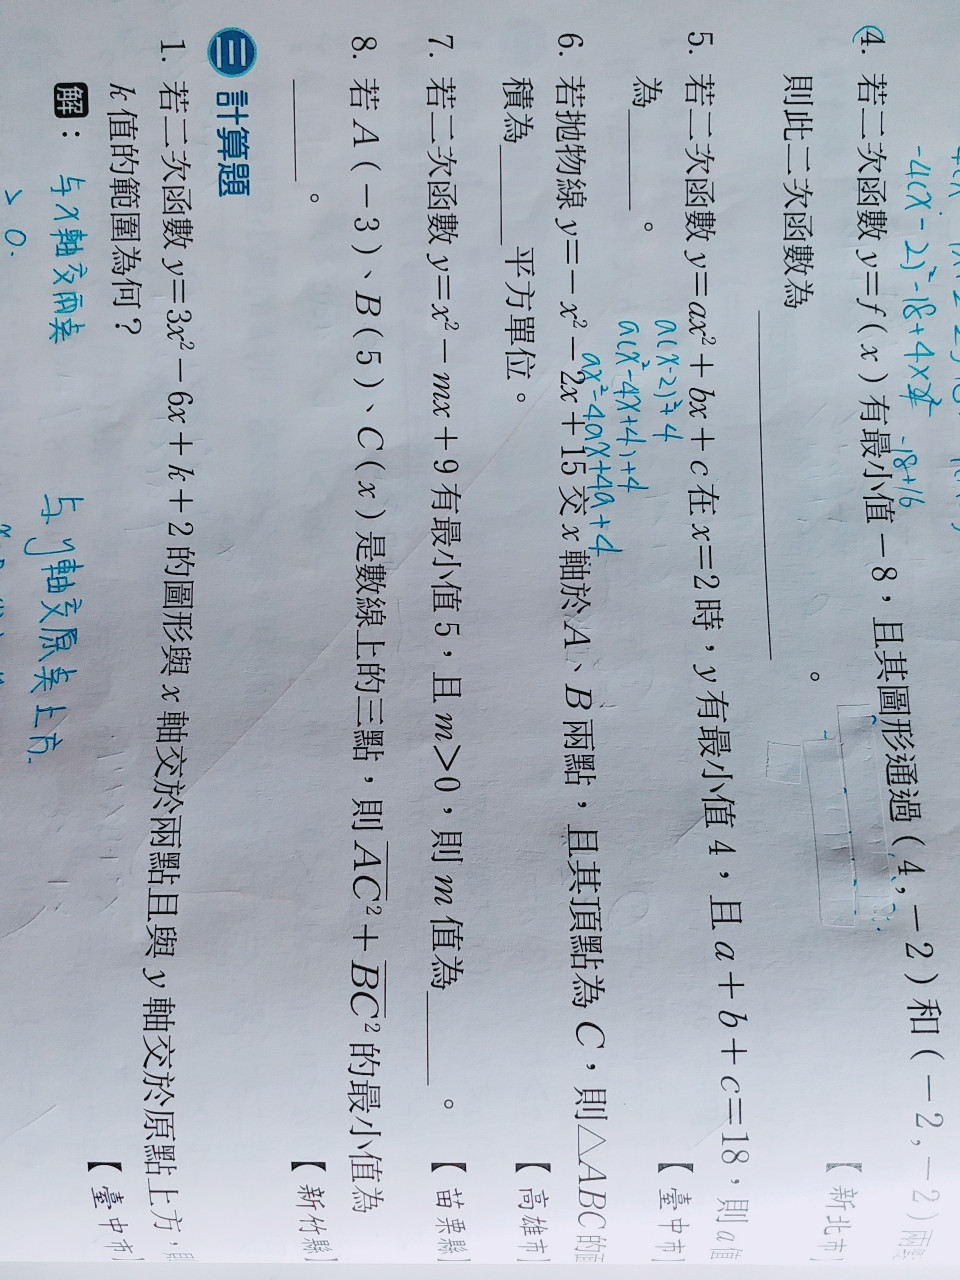 -4(x-2)²-18+4×4
-18+16
4. 若二次函數 y=f(x)有最小值-8,且其圖形通過(4,-2)和(-2,-2)兩點
則此二次函數為____________。
【新北市】
5. 若二次函數 y=ax²+bx+c 在 x=2 時,y 有最小值 4,且 a+b+c=18,則 a 值
為______。
【臺中市】
a(x-2)²+4
a(x²-4x+4)+4
ax²-4ax+4a+4
6. 若拋物線 y=-x²-2x+15 交 x 軸於 A、B 兩點,且其頂點為 C,則△ABC 的面
積為______平方單位。
【高雄市】
7. 若二次函數 y=x²-mx+9 有最小值 5,且 m>0,則 m 值為______。
【苗栗縣】
8. 若 A(-3)、B(5)、C(x)是數線上的三點,則 AC²+BC² 的最小值為
______。
【新竹縣】
三 計算題
1. 若二次函數 y=3x²-6x+k+2 的圖形與 x 軸交於兩點且與 y 軸交於原點上方,則
k 值的範圍為何?
【臺中市】
解: 与x軸交兩点 与y軸交原点上方.
> 0.